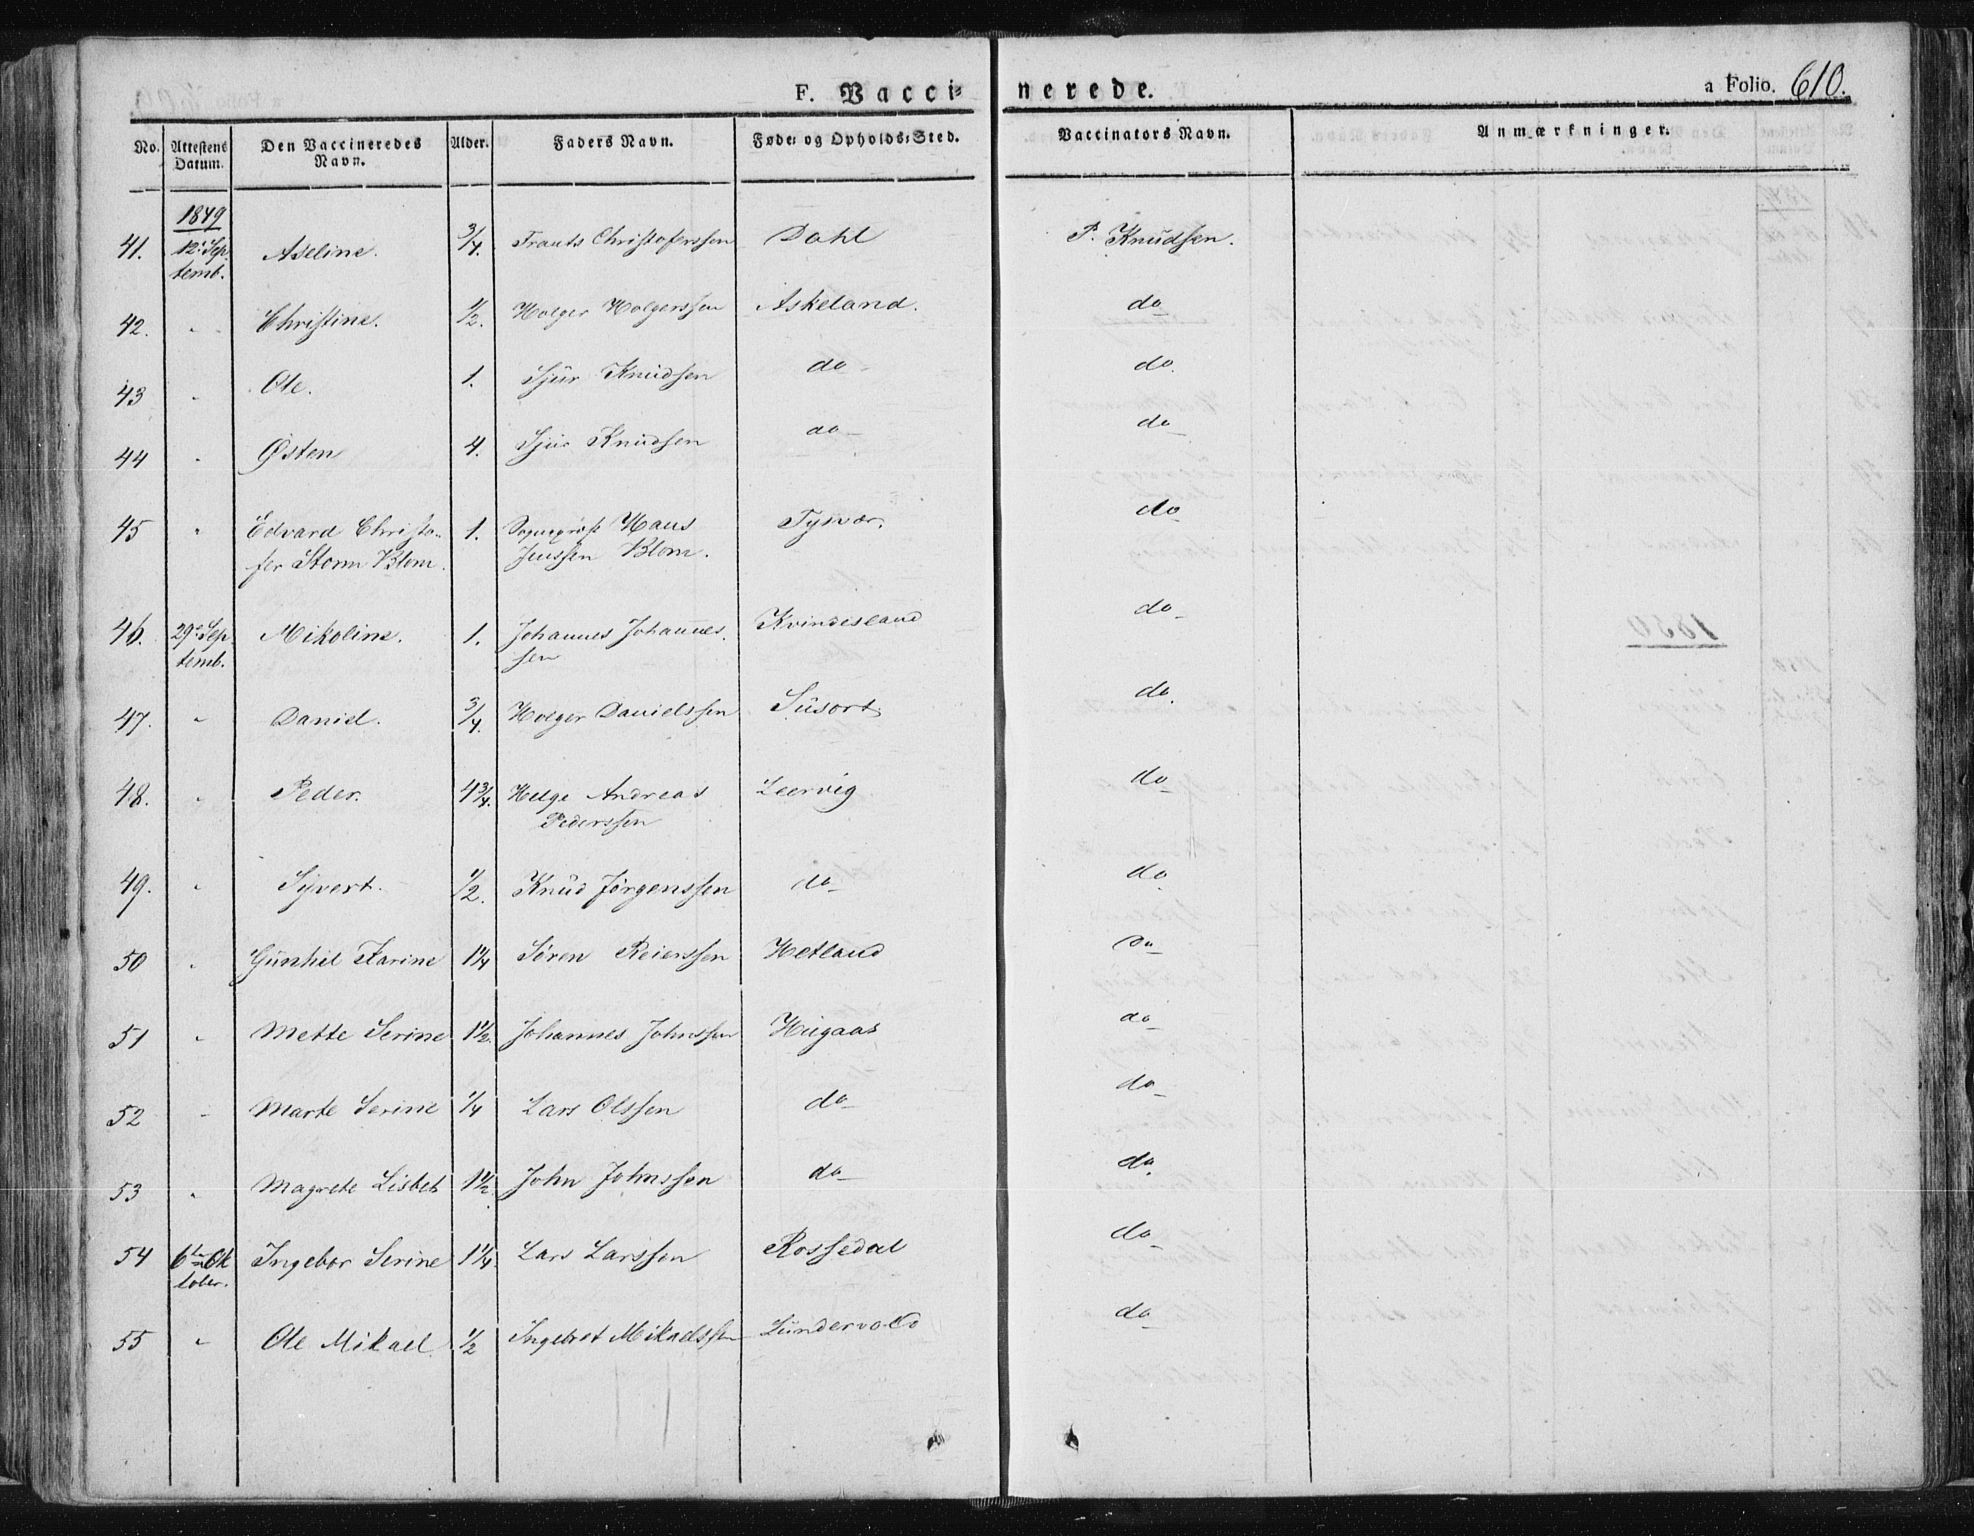 F. Vacci= nerede. a Folio. 610.
No. Attestens Datum. Den Vaccineredes Navn. Alder. Faders Navn. Føde= og Opholds=Sted. Vaccinators Navn. Anmærkninger.
1849
41. 12. Sep Aseline. 3/4. Frants Christoferssen Dahl P. Knudsen.
temb.
42. " Christine. 1/2. Holger Holgerssen Askeland. do
43 " Ole. 1. Sjur Knudsen do do.
44 " Østen 4. Sjur Knudsen do do
45 " Edvard Christo- 1. Sogneprest Hans Tysvær. do
fer Storm Blom. Jenssen Blom.
46. 29. Sep Mikoline. 1. Johannes Johannes Kvindesland do
temb. sen
47. " Daniel. 3/4. Holger Danielssen Susort do.
48. " Peder. 4 3/4. Helge Andreas Leervig do
Pederssen
49. " Syvert. 1/2. Knud Jørgenssen do do
50 " Gunhil Karine 1 1/4 Søren Reierssen Hetland do
51 " Mette Serine 1 1/2. Johannes Johnssen Hugaas do
52 " Marte Serine 1/4 Lars Olssen do do
53 " Magrete Lisbet 1 1/2. John Johnssen do do.
54 6te Ok Ingebor Serine 1 1/4 Lars Larssen Rossedal do
tober.
55 " Ole Mikael 1/2 Ingebret Mikaelssen Lundervold do